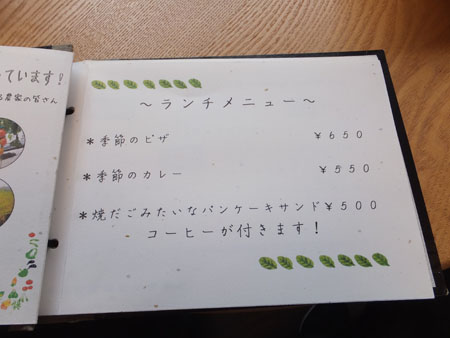 ています!
る農家の皆さん
～ランチメニュー～
*季節のピザ ¥650
*季節のカレー ¥550
*焼だごみたいなパンケーキサンド¥500
コーヒーが付きます!